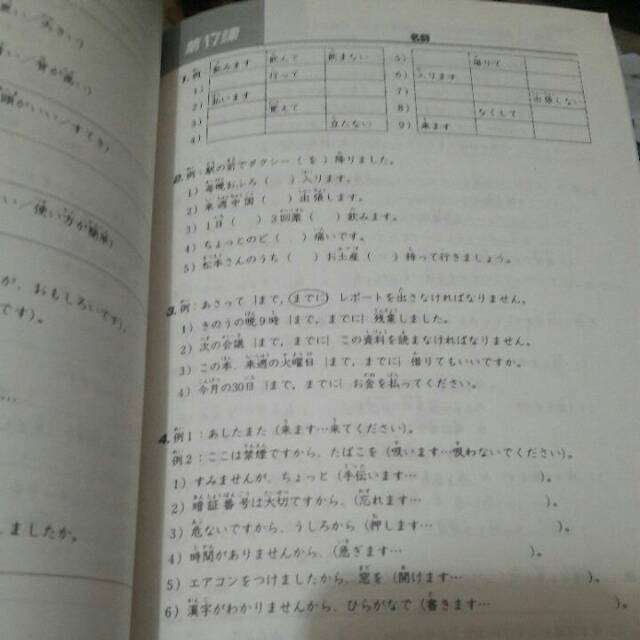 第17課
名前
1. 例 飲みます 飲んで 飲まない 5) 降りて
1) 行って 6) 入ります
2) 払います 7) 出張しない
3) 覚えて 8) なくして
4) 立たない 9) 来ます
2. 例：駅の前でタクシー（を）降りました。
1) 毎晩おふろ（ ）入ります。
2) 来週中国（ ）出張します。
3) 1日（ ）3回薬（ ）飲みます。
4) ちょっとのど（ ）痛いです。
5) 松本さんのうち（ ）お土産（ ）持って行きましょう。
3. 例：あさって {まで, までに} レポートを出さなければなりません。
1) きのうの晩9時 {まで, までに} 残業しました。
2) 次の会議 {まで, までに} この資料を読まなければなりません。
3) この本、来週の火曜日 {まで, までに} 借りてもいいですか。
4) 今月の30日 {まで, までに} お金を払ってください。
4. 例1：あしたまた（来ます…来てください）。
例2：ここは禁煙ですから、たばこを（吸います…吸わないでください）。
1) すみませんが、ちょっと（手伝います… ）。
2) 暗証番号は大切ですから、（忘れます… ）。
3) 危ないですから、うしろから（押します… ）。
4) 時間がありませんから、（急ぎます… ）。
5) エアコンをつけましたから、窓を（開けます… ）。
6) 漢字がわかりませんから、ひらがなで（書きます… ）。